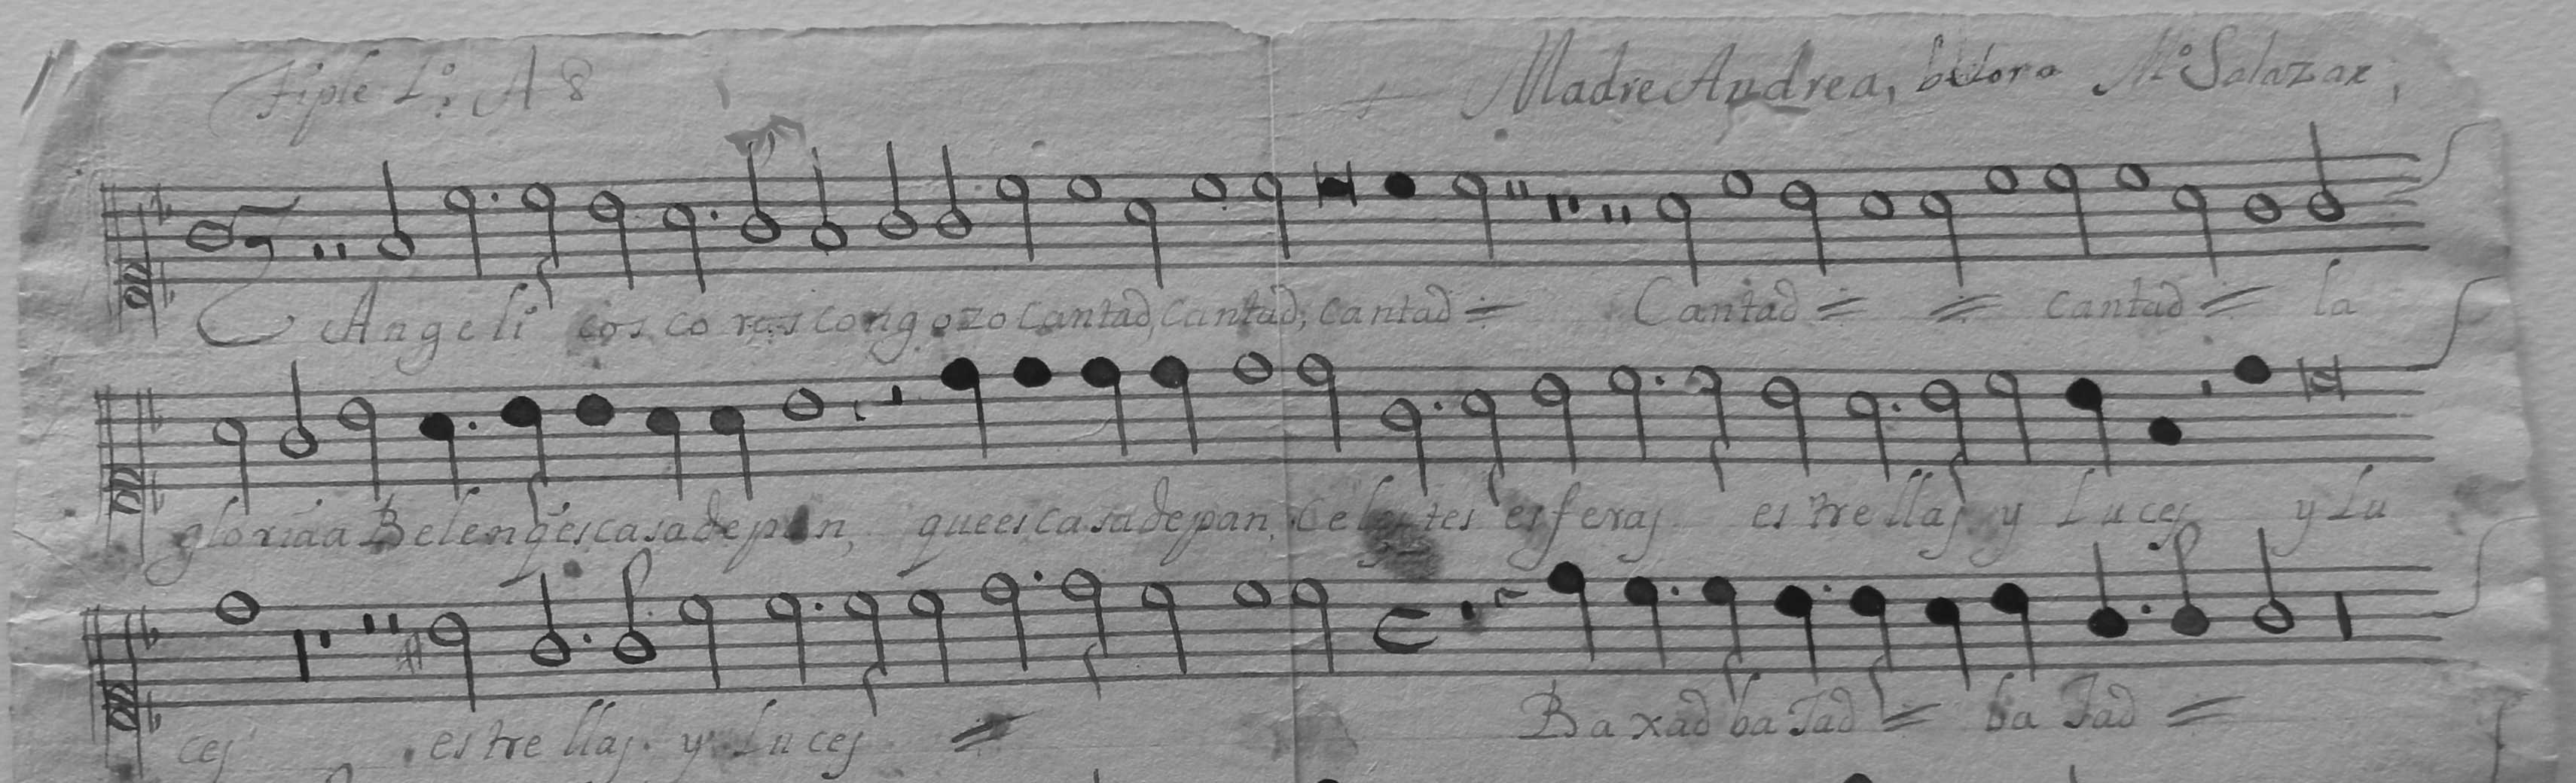 Tiple 1º: A 8 Madre Andrea, Mº Salazar,
Angelicos coros con gozo cantad, cantad, cantad = Cantad = = cantad = la
gloria a Belen q̃ es casa de pan, que es casa de pan, Celestes esferas estrellas y Luces y Lu
ces estrellas y Luces =
Baxad baJad = ba Jad =